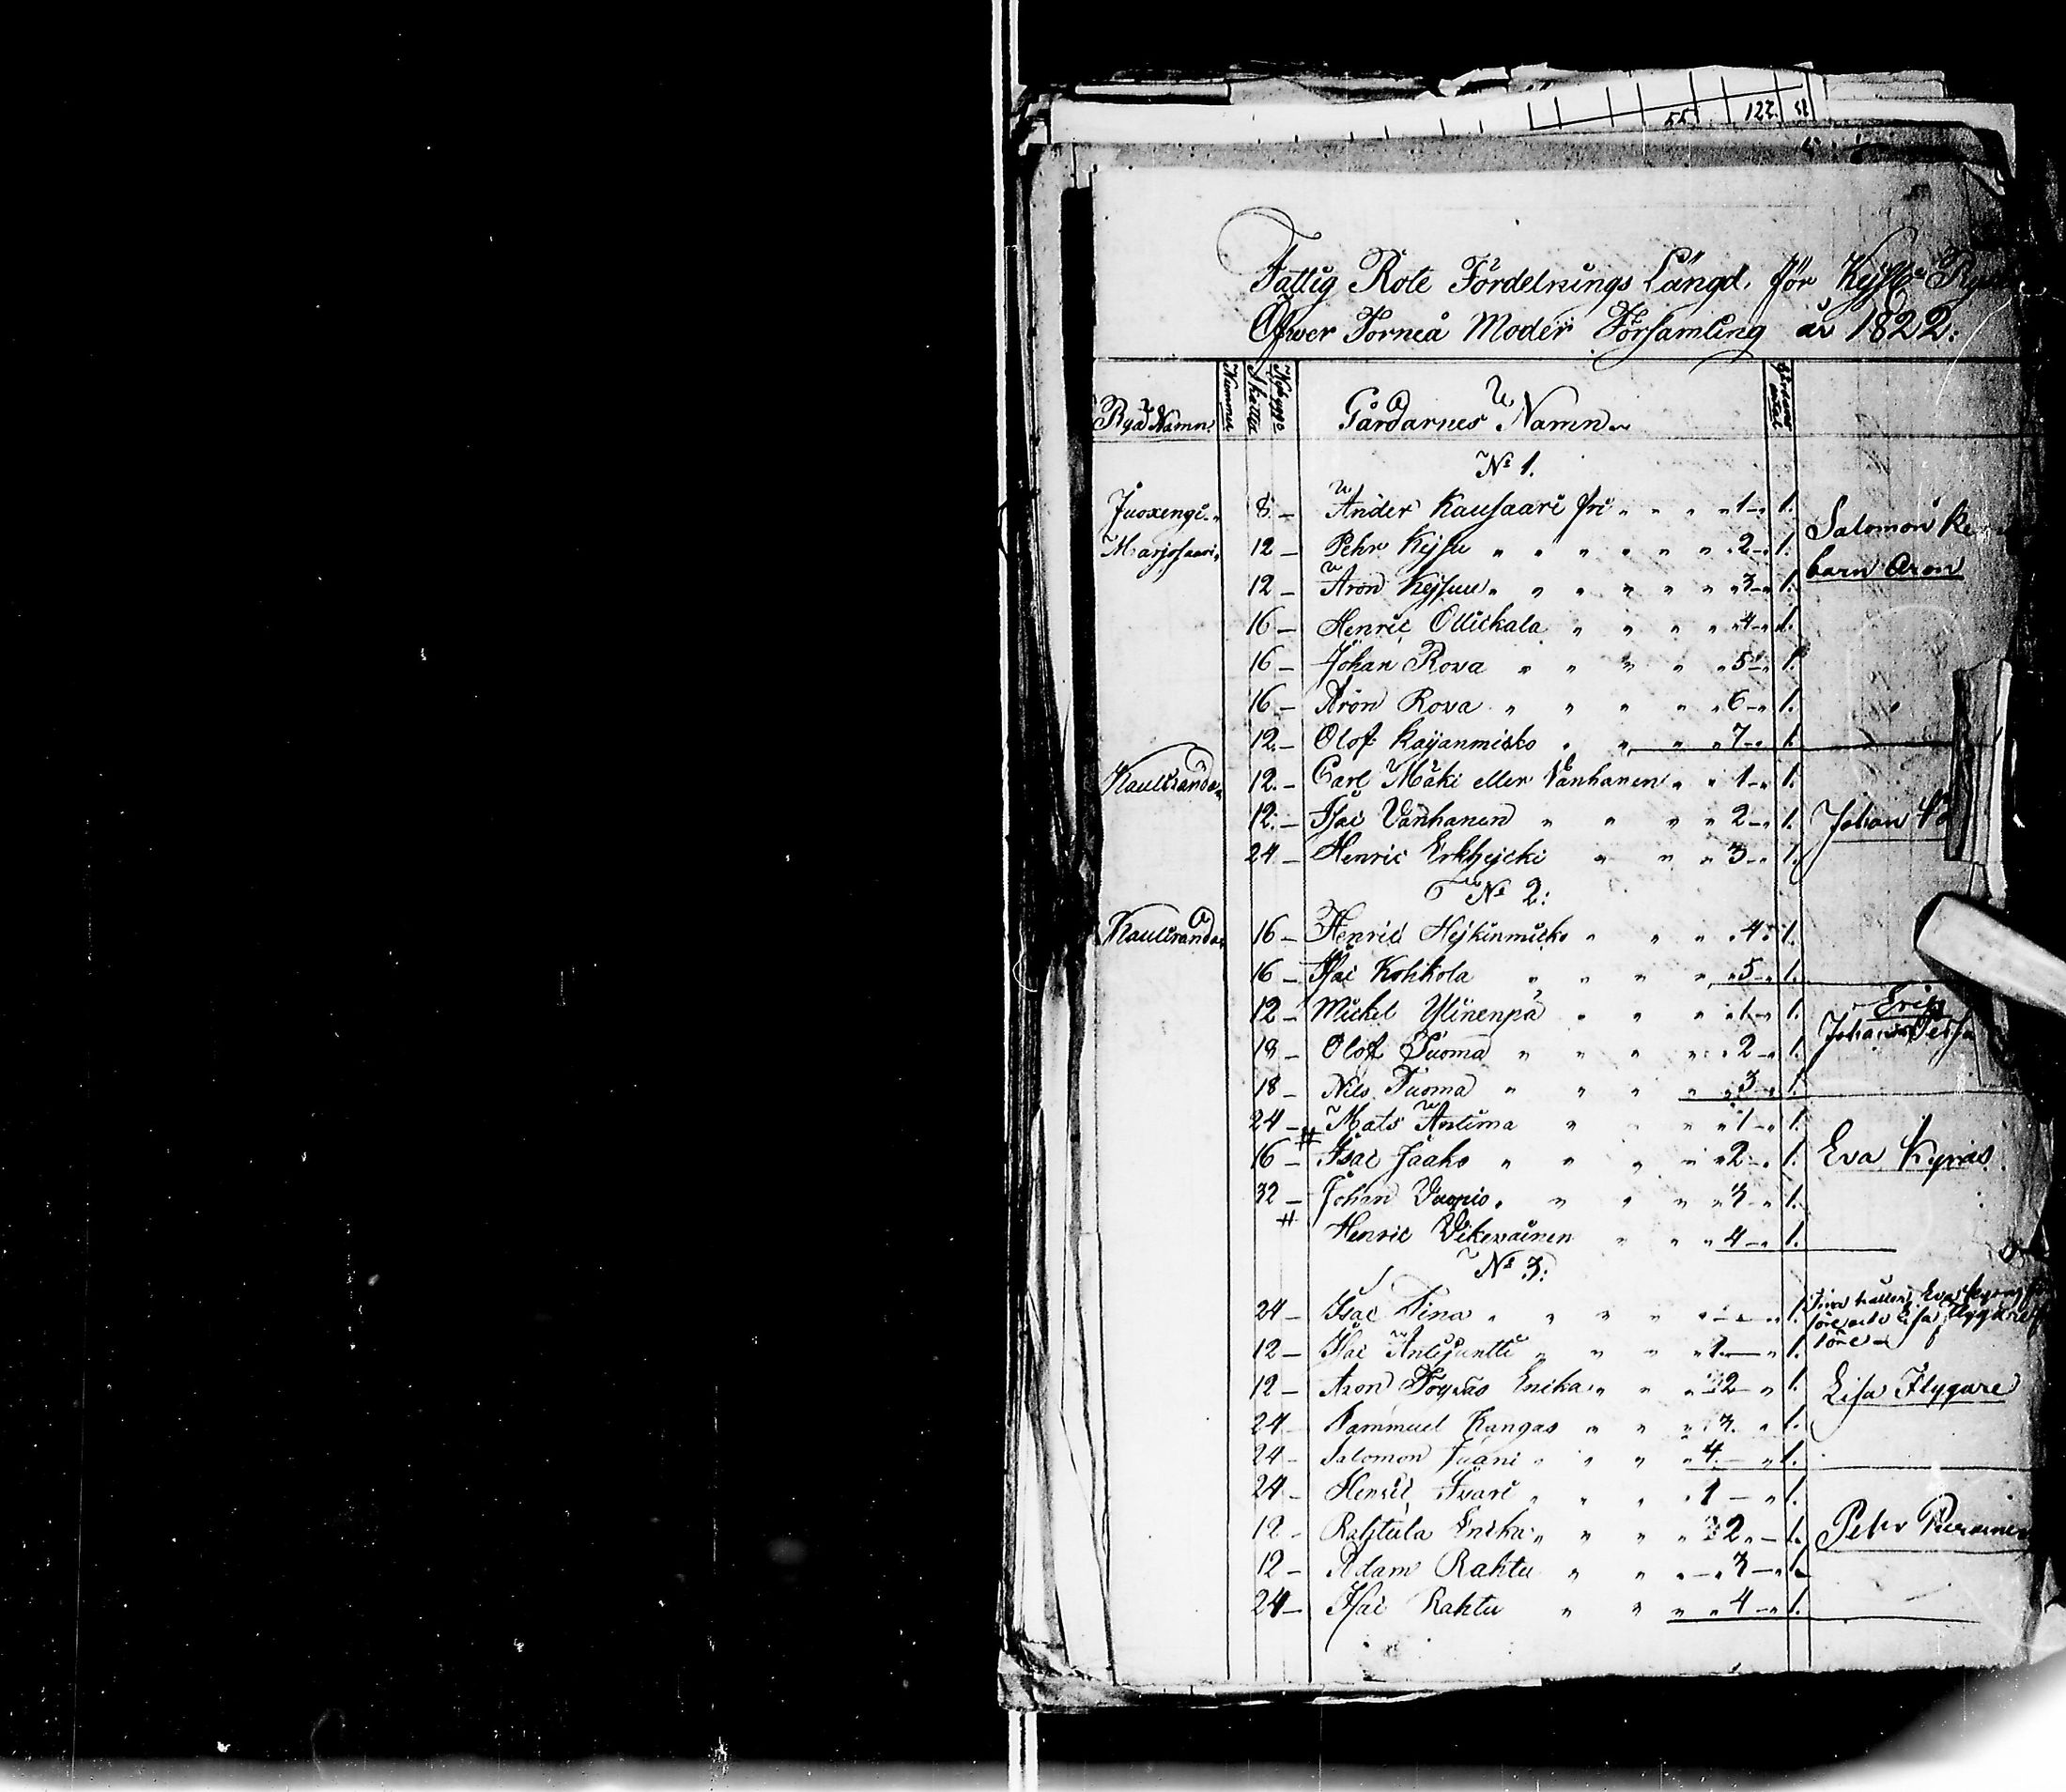 55 122
Fattig Rote Fördelnings Längd för
Öfwer Torneå Moder Församling år 1822:
Byä Namn. Nummer Skatter Nybygge Gårdarnes Namn
No 1.
Juoxengi 8 — Ander Kausaari fri " " " 1 — 1.
Marjosaari 12 — Pehr Kejsu " " " 2 — 1. Salomon
12 — Aron Kejsuu " " " 3 — 1. barn Aron
16 — Henric Ollickala " " " 4 — 1.
16 — Johan Rova " " " 5 — 1.
16 — Aron Rova " " " 6 — 1.
12 — Olof Kayanmisko " " 7 — 1.
Kauliranda 12 — Carl Mäki eller Vanhanen " " 1 — 1.
12 — Isac Vanhanen " " " 2 — 1. Johan
24 — Henric Erkhejcki " " " 3 — 1.
No 2:
Kauliranda 16 — Henric Hejkinmicko " " " 4 1.
16 — Isac Kohkola " " " 5 — 1.
12 — Mickel Ylinenpä " " " 1 — 1. Erik
18 — Olof Tuoma " " " 2 — 1. Johan
18 — Nils Tuoma " " " 3 — 1.
24 — Mats Antima " " " 1 — 1.
16 — Isac Jaako " " " 2 — 1. Eva Kyrös
32 — Johan Vuopio " " " 3 — 1.
Henric Vikevainen " " " 4 — 1.
No 3:
24 — Isac Pina " " " 1.
12 — Isac Antijuntti " " " 1 — 1.
12 — Aron Töyräs Enika " " 2 — 1. Lisa Flygare
24 — Sammuel Kangas " " " 3 " 1.
24 — Salomon Juani " " " 4 — 1.
24 — Henric Isvari " " " 1 — 1.
12 — Rahtula Enika " " " 2 — 1. Pehr
12 — Adam Rahtu " " 3 — 1.
24 — Isac Rahtu " " " 4 — 1.